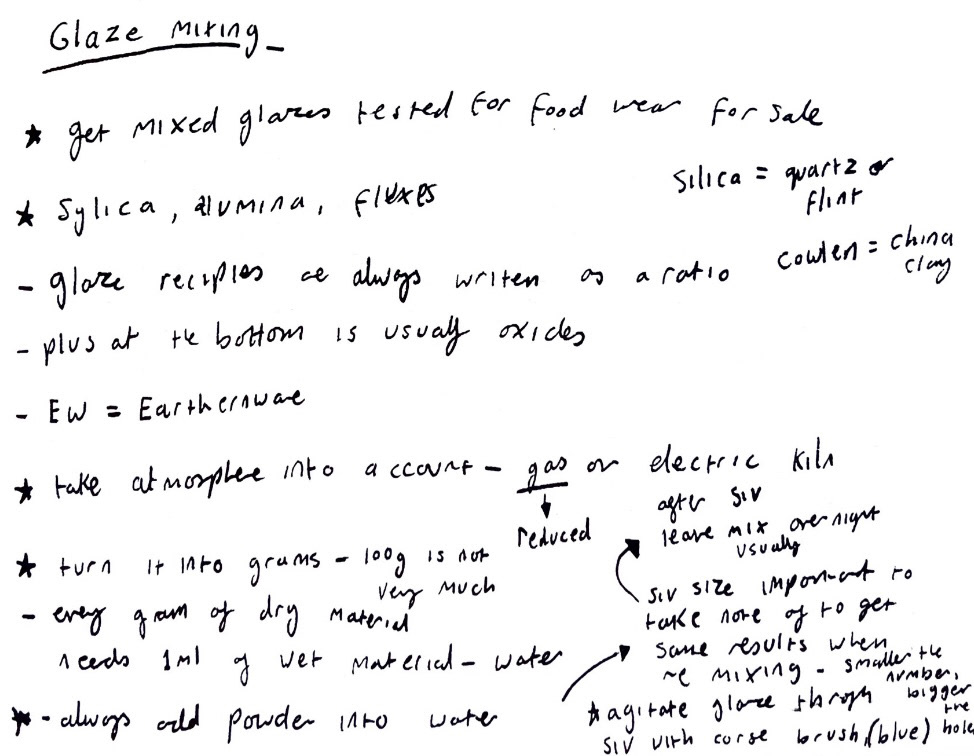 Glaze Mixing
★ get mixed glazes tested for food wear for sale
★ Sylica, alumina, fluxes
Silica = quartz or
flint
- glaze recipies are always writen as a ratio
cowlen = china
clay
- plus at the bottom is usually oxides
- EW = Earthernware
★ take atmosphere into account - gas or electric kiln
reduced
★ turn it into grams - 100g is not
very much
- every gram of dry material
needs 1ml of wet material - water
★ - always add powder into water
after siv
leave mix overnight
usually
siv size important to
take note of to get
same results when
re mixing - smaller the
number,
bigger
the
hole
★ agitate glaze through
siv with corse brush (blue)